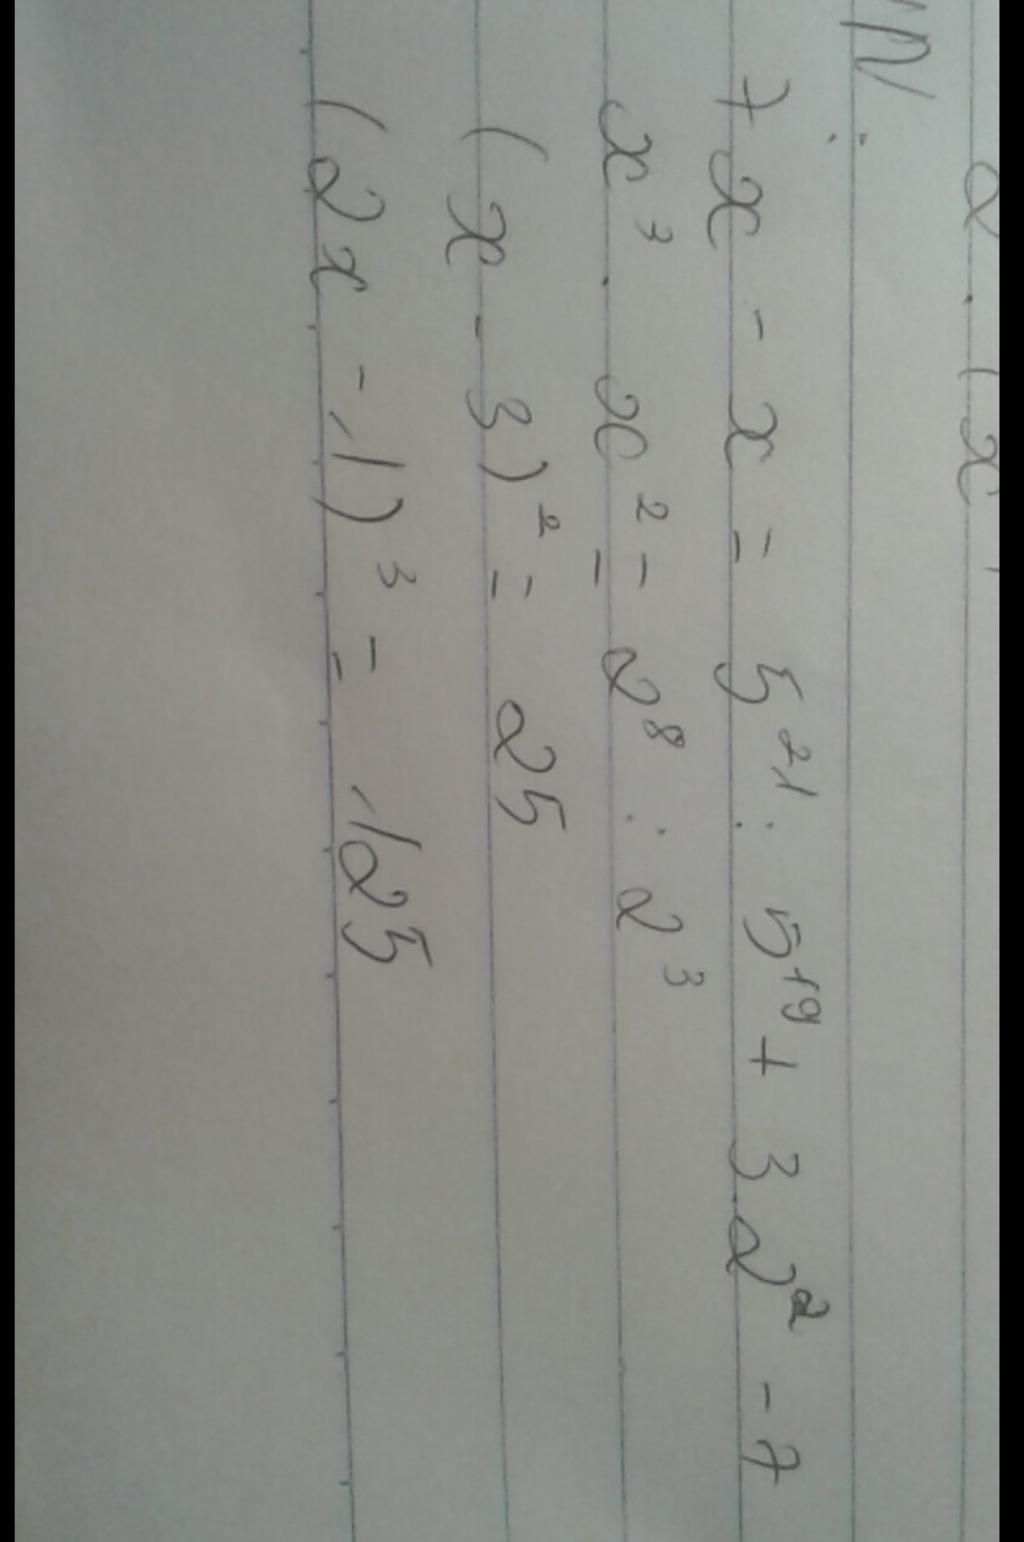 2 . ( x
7x - x = 5²¹ : 5¹⁹ + 3.2² - 7
x³ . x² = 2⁸ : 2³
(x - 3)² = 25
(2x - 1)³ = 125